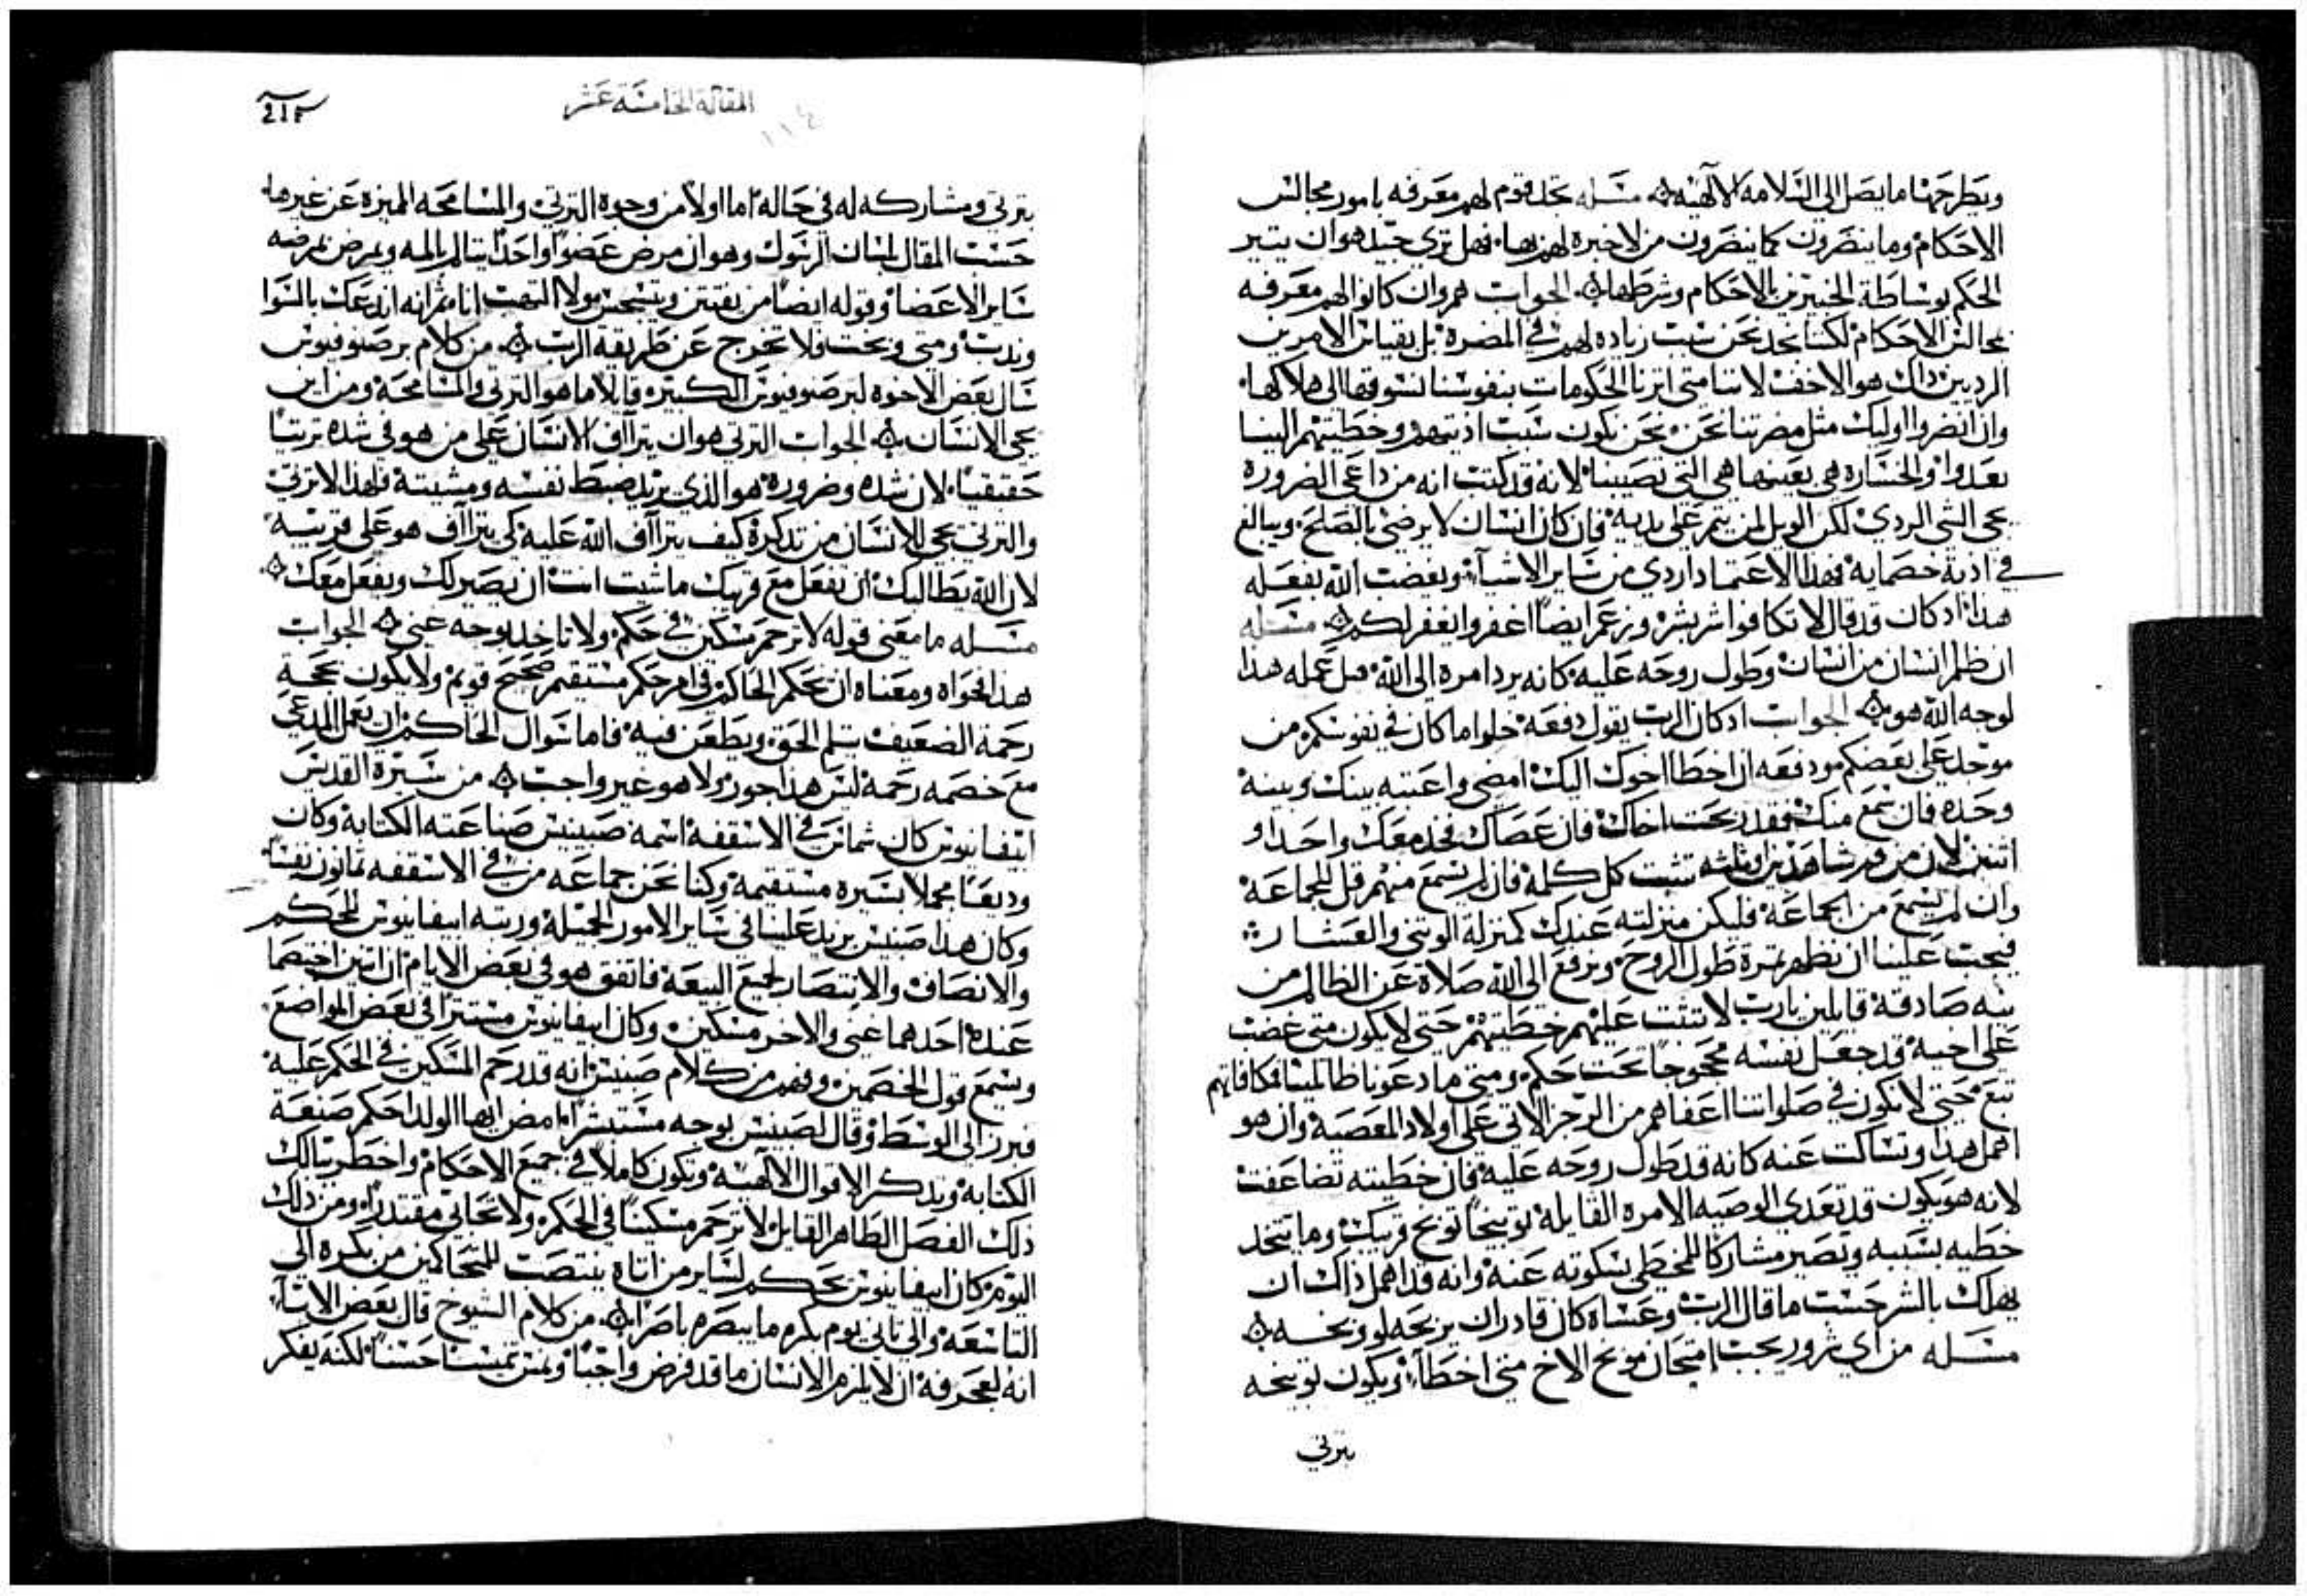 ويطرحهنا ما يصل الى السلامه الالهيه ۞ مسله نجد قوم لهم معرفه بامور مجالس
الاحكام وما ينضرون كما ينضرون من لا خبره لهم بها فهل تري جيد هو ان يتير
الحكم بوساطة الخبيرين بالاحكام وشرطها ۞ الجواب هم وان كانوا لهم معرفه
بمجالس الاحكام لكننا نجد نحن سبب زياده لهم في المضره بل بقياس الامرين
الرديين ذاك هو الاخف لاننا متى اثرنا الحكومات بنفوسنا نسوقها الى هلاكها
وان انضروا اوليك مثل مضرتنا نحن نحن نكون سبب اذيتهم وخطيتهم الينا
بعدوا والخساره هي بعينها هي التي تصيبنا لانه قد كتب انه من داعي الضروره
يجي الشي الردي لكن الويل لمن يتم على يديه فان كان انسان لا يرضى بالصلح ويبالغ
في اذية خصمايه فهذا الاعتماد اردي من ساير الاشياء وبغضت الله بفعله
هذا اذ كان قد قال لا تكافوا شر بشر وزعم ايضاً اغفروا يغفر لكم ۞ مسله
ان ظلم انسان من انسان وطول روحه عليه كانه يرد امره الى الله فهل عمله هذا
لوجه الله هو ۞ الجواب اذ كان الرب يقول دفعه حلوا ما كان في نفوسكم من
موجد على بعضكم ودفعه ان اخطا اخوك اليك امضي واعتبه بينك وبينه
وحده فان سمع منك فقد ربحت اخاك فان عصاك فخذ معك واحد او
اثنين لان من فم شاهدين او ثلثه تثبت كل كلمة فان لم يسمع منهم قل للجماعة
وان لم يسمع من الجماعة فليكن منزلته عندك كمنزلة الوثني والعشار
فيجب علينا ان نظهر ثمرة طول الروح ونرفع الى الله صلاة عن الظالم من
نيه صادقة قايلين يارب لا تثبت عليهم خطيتهم حتى لا يكون متى غضب
على اخيه قد جعل نفسه محجوجاً تحت حكم ومتى ما دعونا ظالمينا فمكافاتهم
تبع حتى لا يكون في صلواتنا اعفاهم من الرجز الاتي على اولاد المعصية وان هو
اهمل هذا وتساكت عنه كانه قد طول روحه عليه فان خطيته تضاعفت
لانه هو يكون قد تعدى الوصيه الامره القايلة توبيخاً توبخ قريبك وما تتخذ
خطيه بسببه وتصير مشاركاً للمخطي بسكوته عنه وانه قد اهمل ذاك ان
يهلك بالشر حسب ما قال الرب وعساه كان قادر ان يربحه لو وبخه ۞
مسله من اي شرور يجب امتحان موبخ الاخ متى اخطا ويكون توبيخه
بترتي
المقالة الخامسة عشر
١١٤
بترتي ومشاركه له في حاله اما اولاً من وجوه الترتي والمسامحه المميزه عن غيرها
حسب المقال بلسان الرسول وهو ان مرض عضواً واحداً يتالم بالمه ويمرض لمرضه
ساير الاعضا وقوله ايضاً من يفتتن ويتسجس مولا التهب انا ثم انه اندعك بالسوا
وندب ومتى وبخت فلا تخرج عن طريقة الرب ۞ من كلام برصنوفيوس
سال بعض الاخوه لبرصنوفيوس الكبير قايلا ما هو الترتي والمسامحة ومن اين
يجي الانسان ۞ الجواب الترتي هو ان يتراآف الانسان على من هو في شده ترتياً
حقيقياً لان شده وضروره هو الذي يريد ضبط نفسه ومشيته فلهذا لا ترتي
والترتي يجي للانسان من تذكرة كيف يتراآف الله عليه كي يتراآف هو على قريبه
لان الله يطالبك ان تفعل مع قريبك ما شيت انت ان يصير لك ويفعل معك ۞
مسله ما معنى قوله لا ترحم مسكين في حكم ولا تاخذ بوجه غني ۞ الجواب
هذا فحواه ومعناه ان يحكم الحاكم في امر حكم مستقيم صحيح قويم ولا يكون بحجة
رحمة الضعيف يثلم الحق ويطعن فيه فاما سوال الحاكم ان يعمل المدعي
مع خصمه رحمة ليس هذا جور ولا هو غير واجب ۞ من سيرة القديس
ابيفانيوس كان شماس في الاسقفه اسمه صبينس صناعته الكتابة وكان
وديعاً مجملا بسيره مستقيمة وكنا نحن جماعه من في الاسقفه ثمانون نفساً
وكان هذا صبينس يزيد علينا في ساير الامور الجميلة ورتبه ابيفانيوس للحكم
والانصاف والانتصار لجميع البيعة فاتفق هو في بعض الايام ان اثنين اختصما
عنده احدهما غني والاخر مسكين وكان ابيفانيوس مستتراً في بعض المواضع
ويسمع قول الخصمين وفهم من كلام صبينس انه قد رحم المسكين في الحكم عليه
فبرز الى الوسط وقال لصبينس بوجه مستبشر امض ايها الولد احكم صنعة
الكتابه وتذكر الاقوال الالهية وتكون كاملاً في جميع الاحكام واخطر ببالك
ذلك الفصل الطاهر القايل لا ترحم مسكيناً في الحكم ولا تحابي مقتدراً ومن ذلك
اليوم كان ابيفانيوس يحكم لساير من اتاه ينتصب للمتحاكمين من بكره الى
التاسعة والى ثاني يوم بكره ما يبصره باصر ۞ من كلام الشيوخ قال بعض الابآء
انه لعجرفة ان لا يلزم الانسان ما قد فرض واجباً ولمن تمسنا حسناً لكنه يفكر